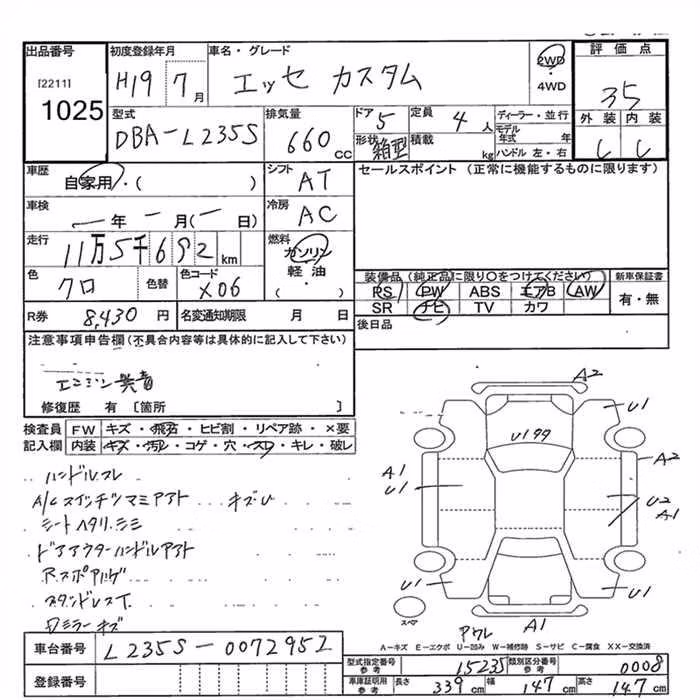 出品番号 初度登録年月 車名・グレード 評価点
[2211] H19 7月 エッセ カスタム 2WD 4WD 35
1025
型式 排気量 ドア 定員 ディーラー・並行 外装 内装
DBA-L235S 660cc 5 4人 モデル年式 年 C C
形状 箱型 積載 kg ハンドル 左・右
車歴 シフト セールスポイント (正常に機能するものに限ります)
自家用・( ) AT
車検 冷房
年 月( 日) AC
走行 燃料
11万5千692km ガソリン
色 色替 色コード 軽油 装備品(純正品に限り○をつけてください) 新車保証書
クロ X06 ・( ) PS PW ABS エアB AW 有・無
SR ナビ TV カワ
R券 8,430円 名変通知期限 月 日 後日品
注意事項申告欄(不具合内容等は具体的に記入して下さい)
エンジン異音
修復歴 有 [箇所 ]
検査員 FW キズ・飛石・ヒビ割・リペア跡・×要
記入欄 内装 キズ・汚レ・コゲ・穴・スレ・キレ・破レ
ハンドルスレ
A/Cスイッチツマミアト キズU
シートヘタリ.シミ
ドアアウターハンドルアト
A2
U1
U177
A1
U1
A2
U2
A1
U1
U1
スペア
A1
アウレ
A-キズ E-エクボ U-凹み W-補修跡 S-サビ C-腐食 XX-交換済
車台番号 L235S-0072952
登録番号
型式指定番号 参考 15235 類別区分番号 参考 0008
車庫証明用 参考 長さ 339cm 幅 147cm 高さ 147cm